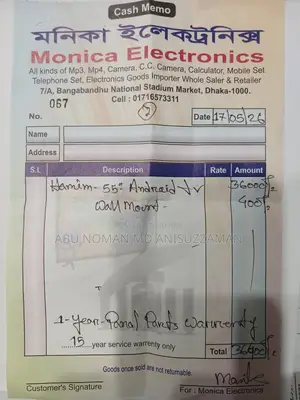 Cash Memo
মনিকা ইলেকট্রনিক্স
Monica Electronics
All kinds of Mp3, Mp4, Camera, C.C. Camera, Calculator, Mobile Set
Telephone Set, Electronics Goods Importer Whole Saler & Retailer
7/A, Bangabandhu National Stadium Market, Dhaka-1000.
Cell : 01716573311
067
No. Date 17/05/26
Name
Address
S.L Description Rate Amount
55" Android Tv 36000/=
Wall Mount 400/=
ABU NOMAN MD ANISUZZAMAN
1-Year-Panel Parts Warrenty
15 year service warranty only Total 36400/=
Goods once sold are not returnable.
Customer's Signature For : Monica Electronics